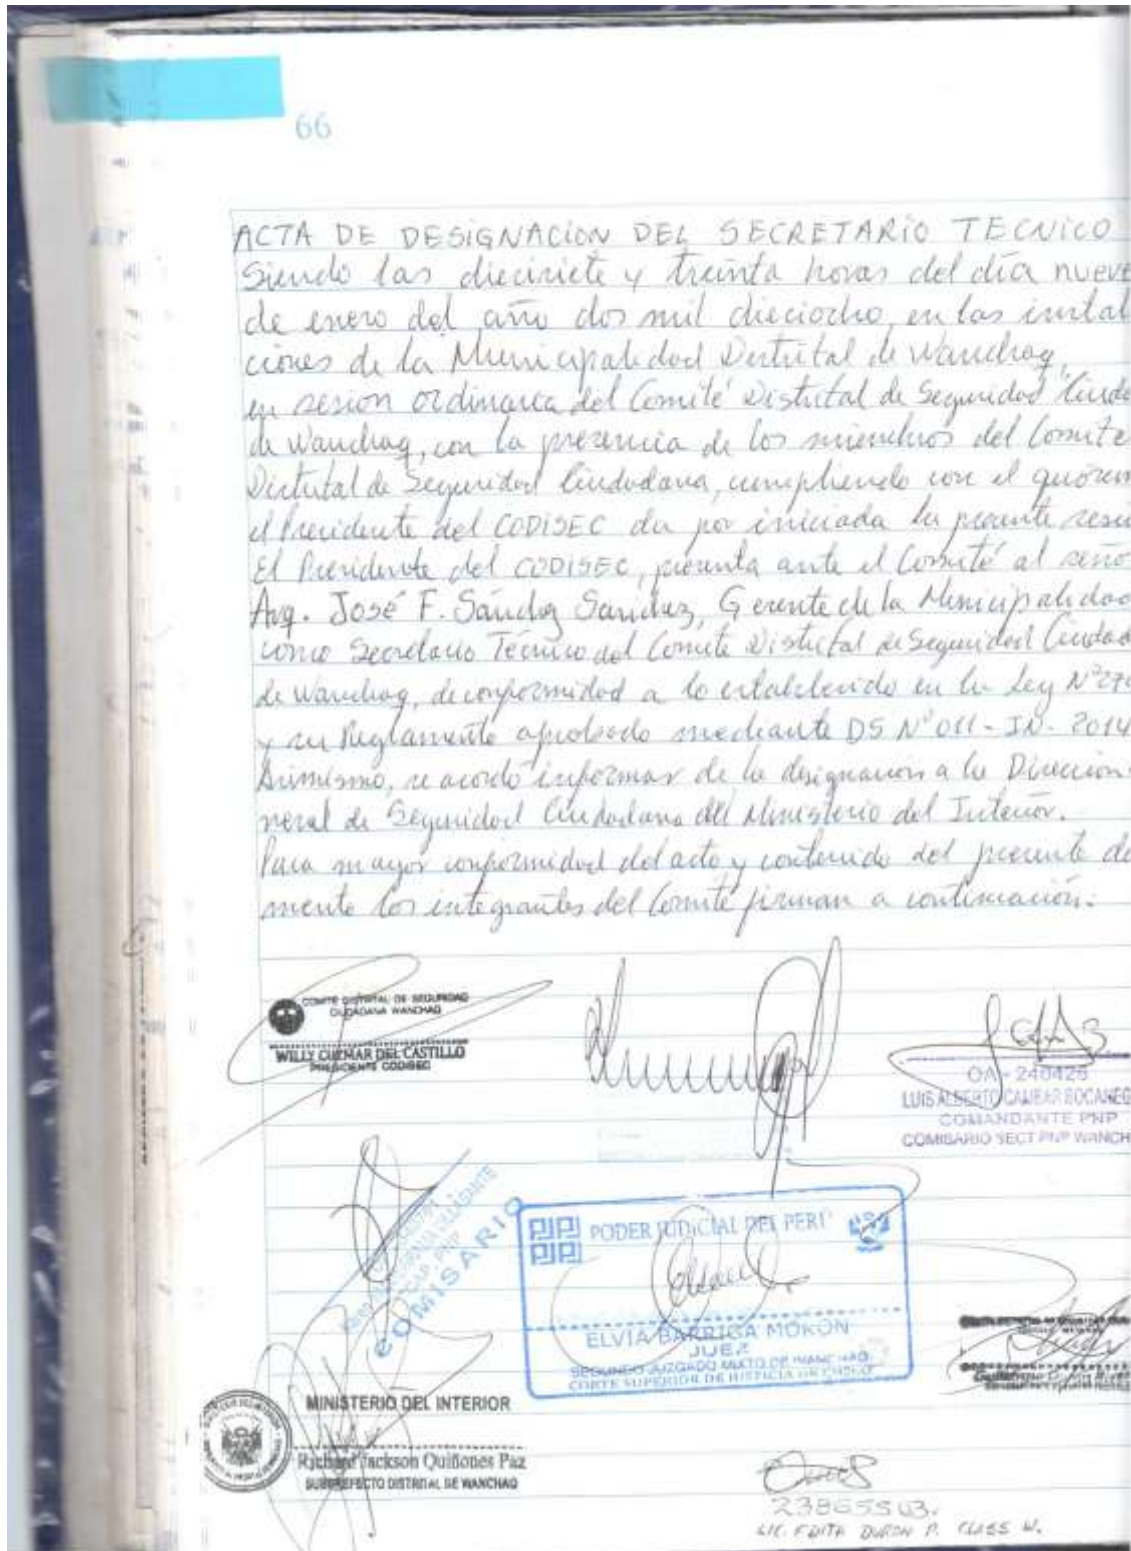 66
ACTA DE DESIGNACION DEL SECRETARIO TECNICO
Siendo las diecisiete y treinta horas del día nueve
de enero del año dos mil dieciocho, en las instala
ciones de la Municipalidad Distrital de Wanchaq,
en sesion ordinaria del Comité Distrital de Seguridad Ciuda
de Wanchaq, con la presencia de los miembros del Comité
Distrital de Seguridad Ciudadana, cumpliendo con el quórum
el Presidente del CODISEC da por iniciada la presente sesi
El Presidente del CODISEC, presenta ante el Comité al señor
Arq. José F. Sánchez Sanchez, Gerente de la Municipalidad
como Secretario Técnico del Comité Distrital de Seguridad Ciudad
de Wanchaq, de conformidad a lo establecido en la Ley N° 279
y su Reglamento aprobado mediante DS N° 011-IN-2014
Asimismo, se acordó informar de la designacion a la Direccion
neral de Seguridad Ciudadana del Ministerio del Interior.
Para mayor conformidad del acto y contenido del presente do
mento los integrantes del Comité firman a continuación:
COMITÉ DISTRITAL DE SEGURIDAD
CIUDADANA WANCHAQ
WILLY CUZMAR DEL CASTILLO
PRESIDENTE CODISEC
OA - 240425
LUIS ALBERTO CAMBAR BOCANEG
COMANDANTE PNP
COMISARIO SECT PNP WANCH
CAP. PNP
COMISARIO
PODER JUDICIAL DEL PERÚ
ELVIA BARRIGA MORÓN
JUEZ
SEGUNDO JUZGADO MIXTO DE WANCHAQ
CORTE SUPERIOR DE JUSTICIA DE CUSCO
MINISTERIO DEL INTERIOR
Richard Jackson Quiñones Paz
SUBPREFECTO DISTRITAL DE WANCHAQ
LIC. EDITH DURAN P. CLASS W.